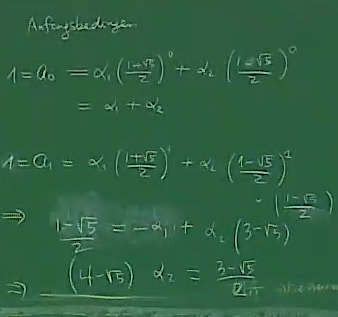 Anfangsbedingungen
1 = a₀ = α₁ ((1+√5)/2)⁰ + α₂ ((1-√5)/2)⁰
= α₁ + α₂
1 = a₁ = α₁ ((1+√5)/2)¹ + α₂ ((1-√5)/2)¹
· ((1-√5)/2)
⇒ (1-√5)/2 = -α₁ + α₂ (3-√5)
⇒ (4-√5) α₂ = (3-√5)/2